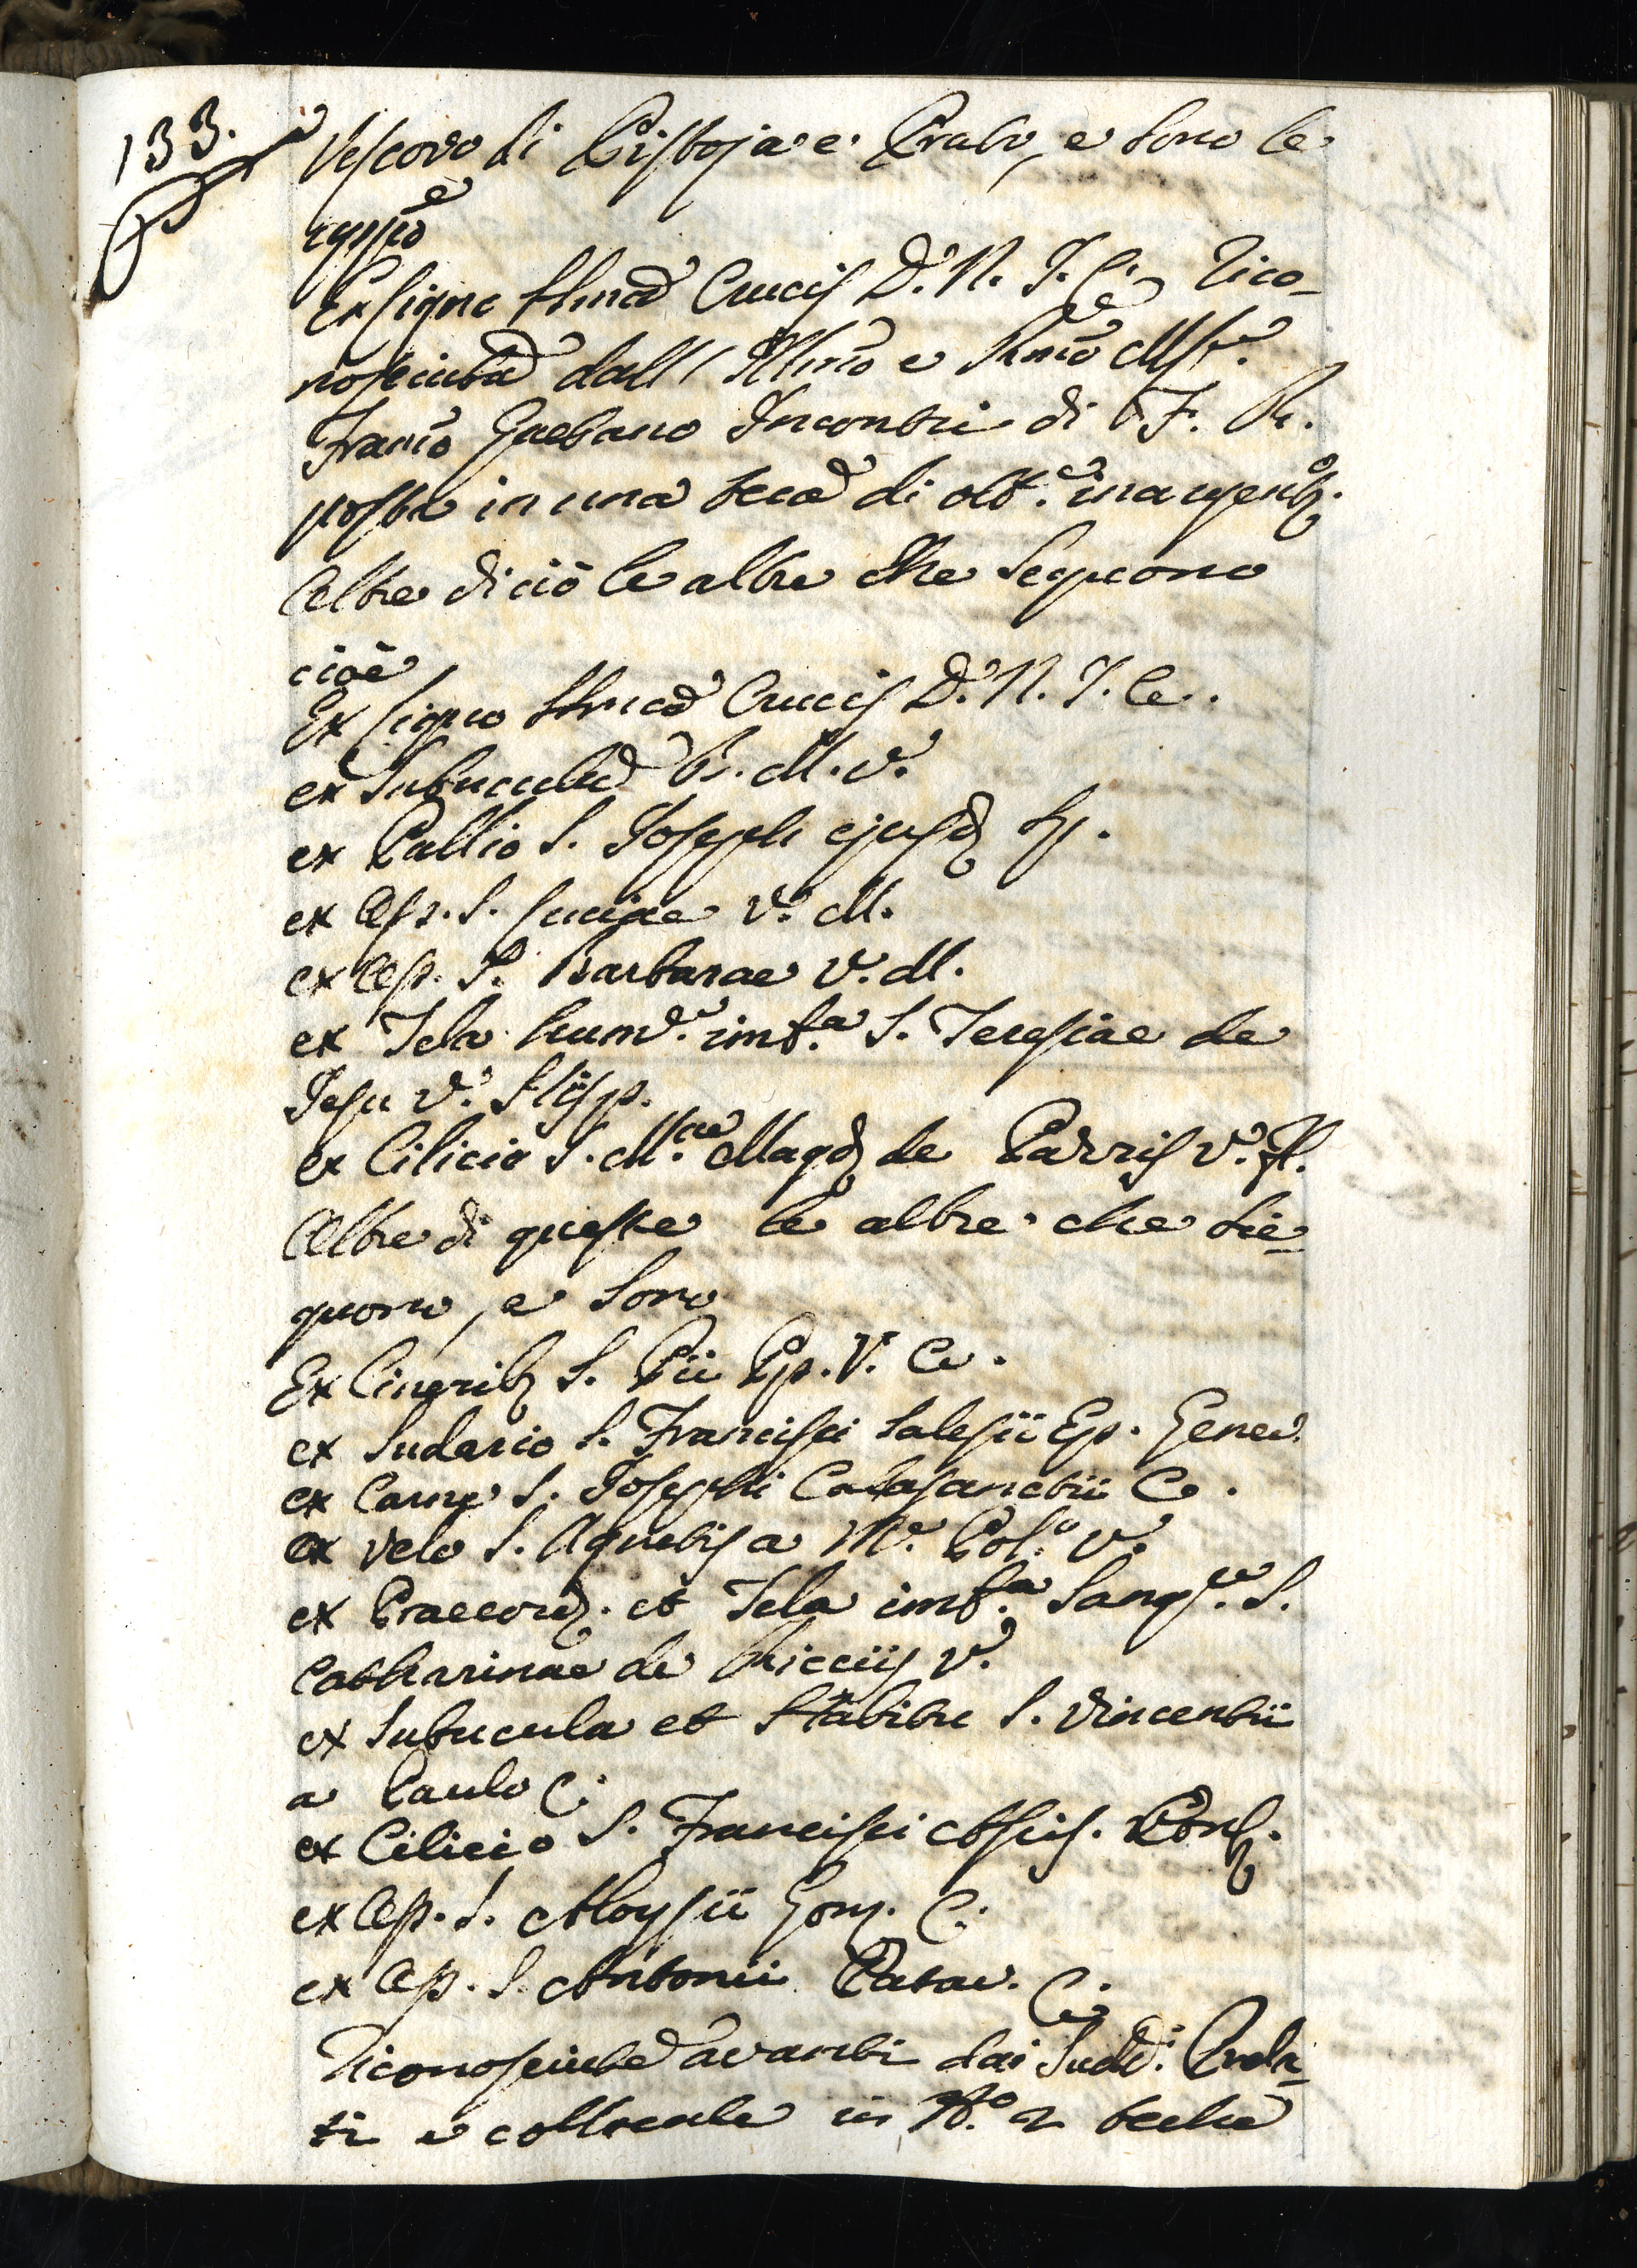 133.
Vescovo di Pistoja e Prato, e sono le
Ex ligno SSmae Crucis D. N. J. C. rico-
nosciuta dall' Illmo e Rmo Msr.
Franco Gaetano Incontri di F. A.
posta in una teca di ott.e inargent.
Oltre di ciò le altre che seguono
cioè
Ex ligno SSmae Crucis D. N. J. C.
ex Subucula B. M. V.
ex Pallio S. Joseph ejusd. Sp.
ex Oss. S. Luciae V. M.
ex Oss. S. Barbarae V. M.
ex Tela imb.a S. Teresiae de
Jesu V. Hisp.
ex Cilicio S. M.ae Magd. de Pazzis V. Fl.
Oltre di queste le altre che sie-
guono, e sono
Ex Cinerib. S. Pii Pp. V. C.
ex Sudario S. Francisci Salesii Ep. Genev.
ex Carne S. Josephi Calasanctii C.
ex velo S. Agnetis a M. Pol.o V.
ex Praecord. et Tela imb.a Sang.e S.
Catharinae de Ricciis V.
ex Subucula et Habitu S. Vincentii
a Paulo C.
ex Cilicio S. Francisci Assis. Conf.
ex Oss. S. Aloysii Gonz. C.
ex Oss. S. Antonii Patav. C.
Riconosciute avanti dai Sudd.i Prela-
ti e collocate in N.o 2 teche